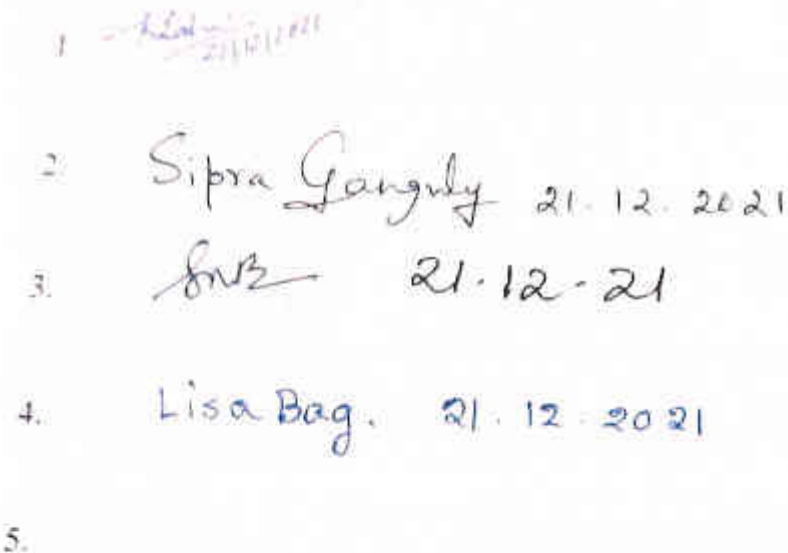 1 21/12/2021
2. Sipra Ganguly 21.12.2021
3. SNB 21.12.21
4. Lisa Bag. 21.12.2021
5.